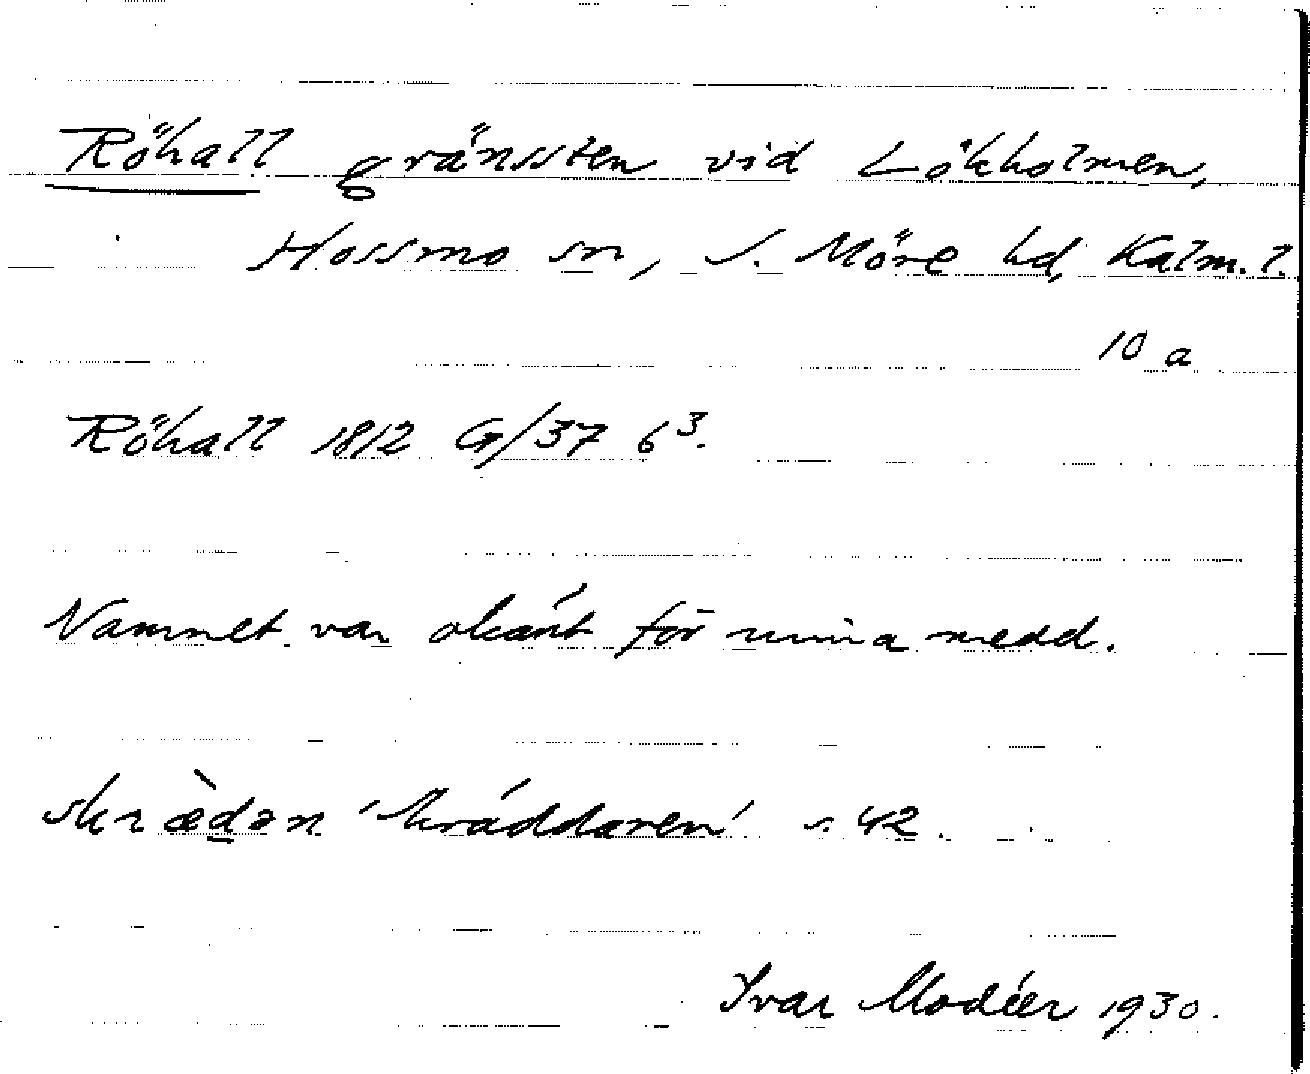 Röhall gränssten vid Lökholmen,
Hossmo sn, S. Möre hd, Kalm. l.
10 a
Röhall 1812 G/37 6³.
Namnet var okänt för mina medd.
skrædən 'skräddaren' s 42.
Ivar Modéer 1930.